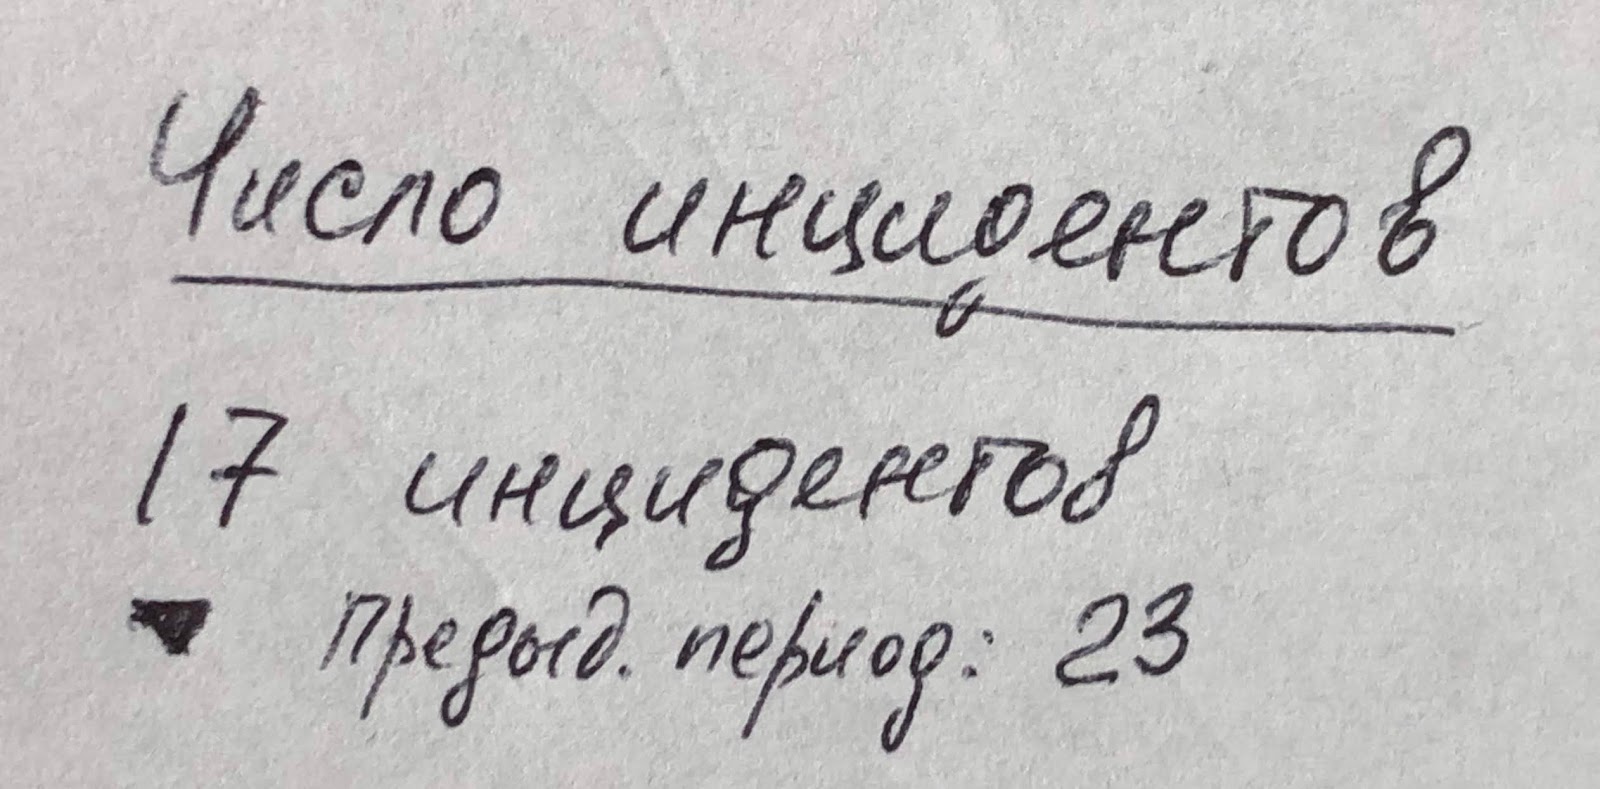 Число инцидентов
17 инцидентов
▼ Предыд. период: 23